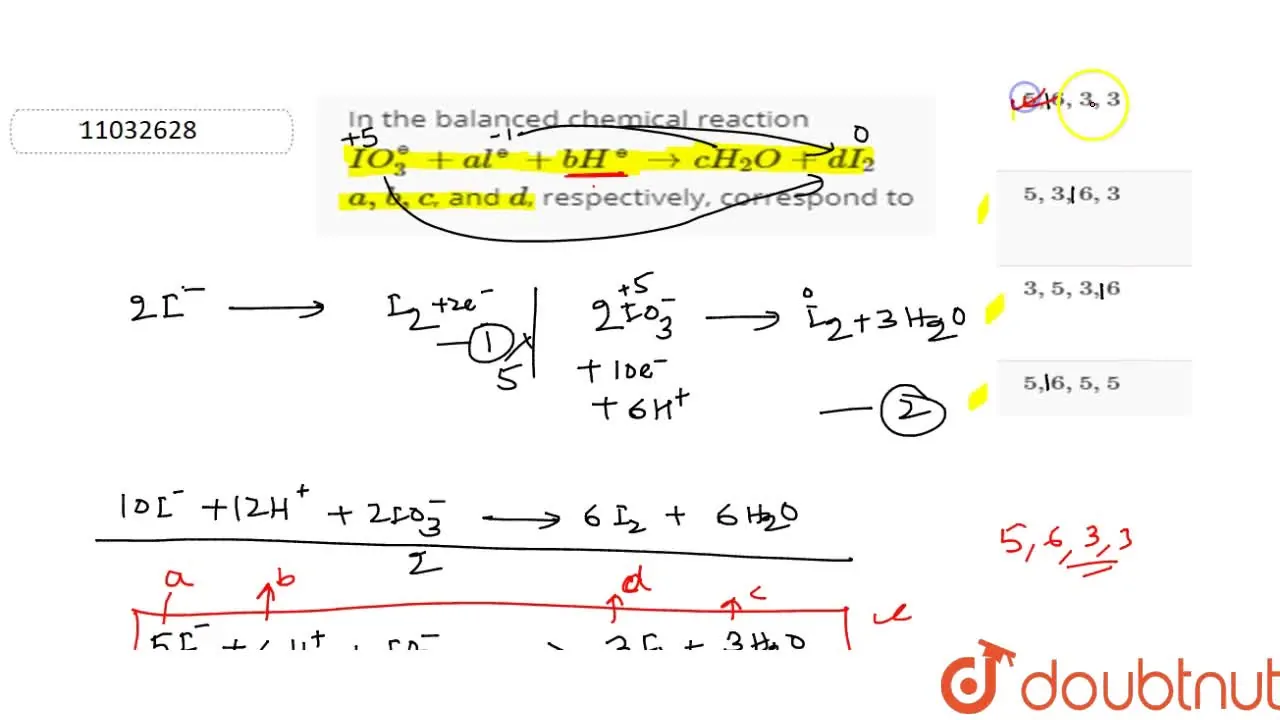 11032628
In the balanced chemical reaction
+5 -1 0
IO₃^⊖ + aI^⊖ + bH^⊕ → cH₂O + dI₂
a, b, c, and d, respectively, correspond to
5, 6, 3, 3
5, 3, 6, 3
3, 5, 3, 6
5, 6, 5, 5
2I⁻ ⟶ I₂ + 2e⁻
— ① × 5
+5 0
2IO₃⁻ ⟶ I₂ + 3H₂O
+ 10e⁻
+ 6H⁺
— ②
10I⁻ + 12H⁺ + 2IO₃⁻ ⟶ 6I₂ + 6H₂O
2
5, 6, 3, 3
a b d c
5I⁻ + 6H⁺ + IO₃⁻ ⟶ 3I₂ + 3H₂O
doubtnut